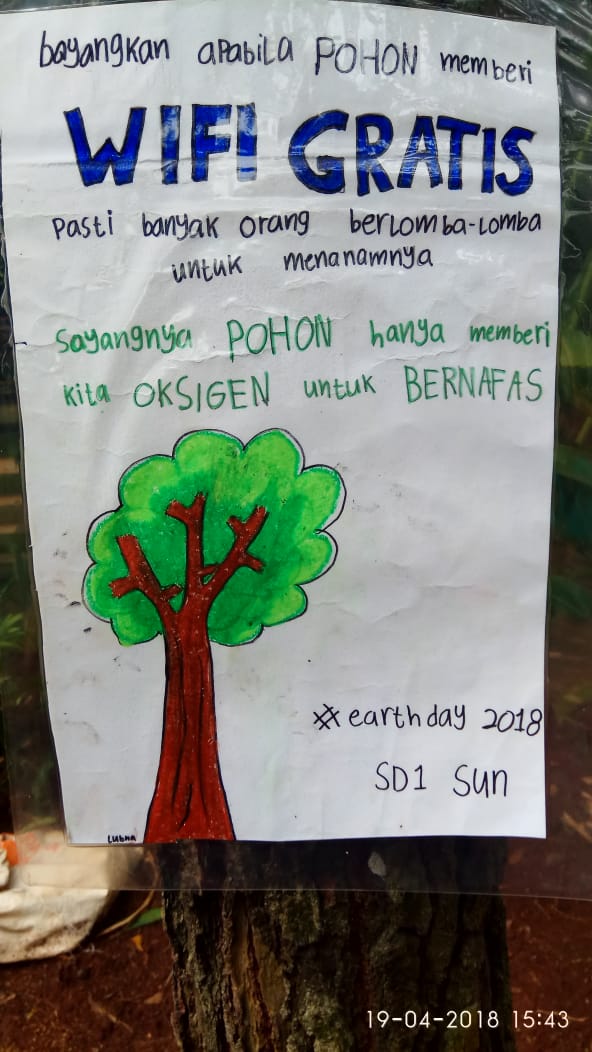 bayangkan apabila POHON memberi
WIFI GRATIS
Pasti banyak orang berlomba-lomba
untuk menanamnya
Sayangnya POHON hanya memberi
kita OKSIGEN untuk BERNAFAS
#earthday 2018
SD1 Sun
Lubna
19-04-2018 15:43